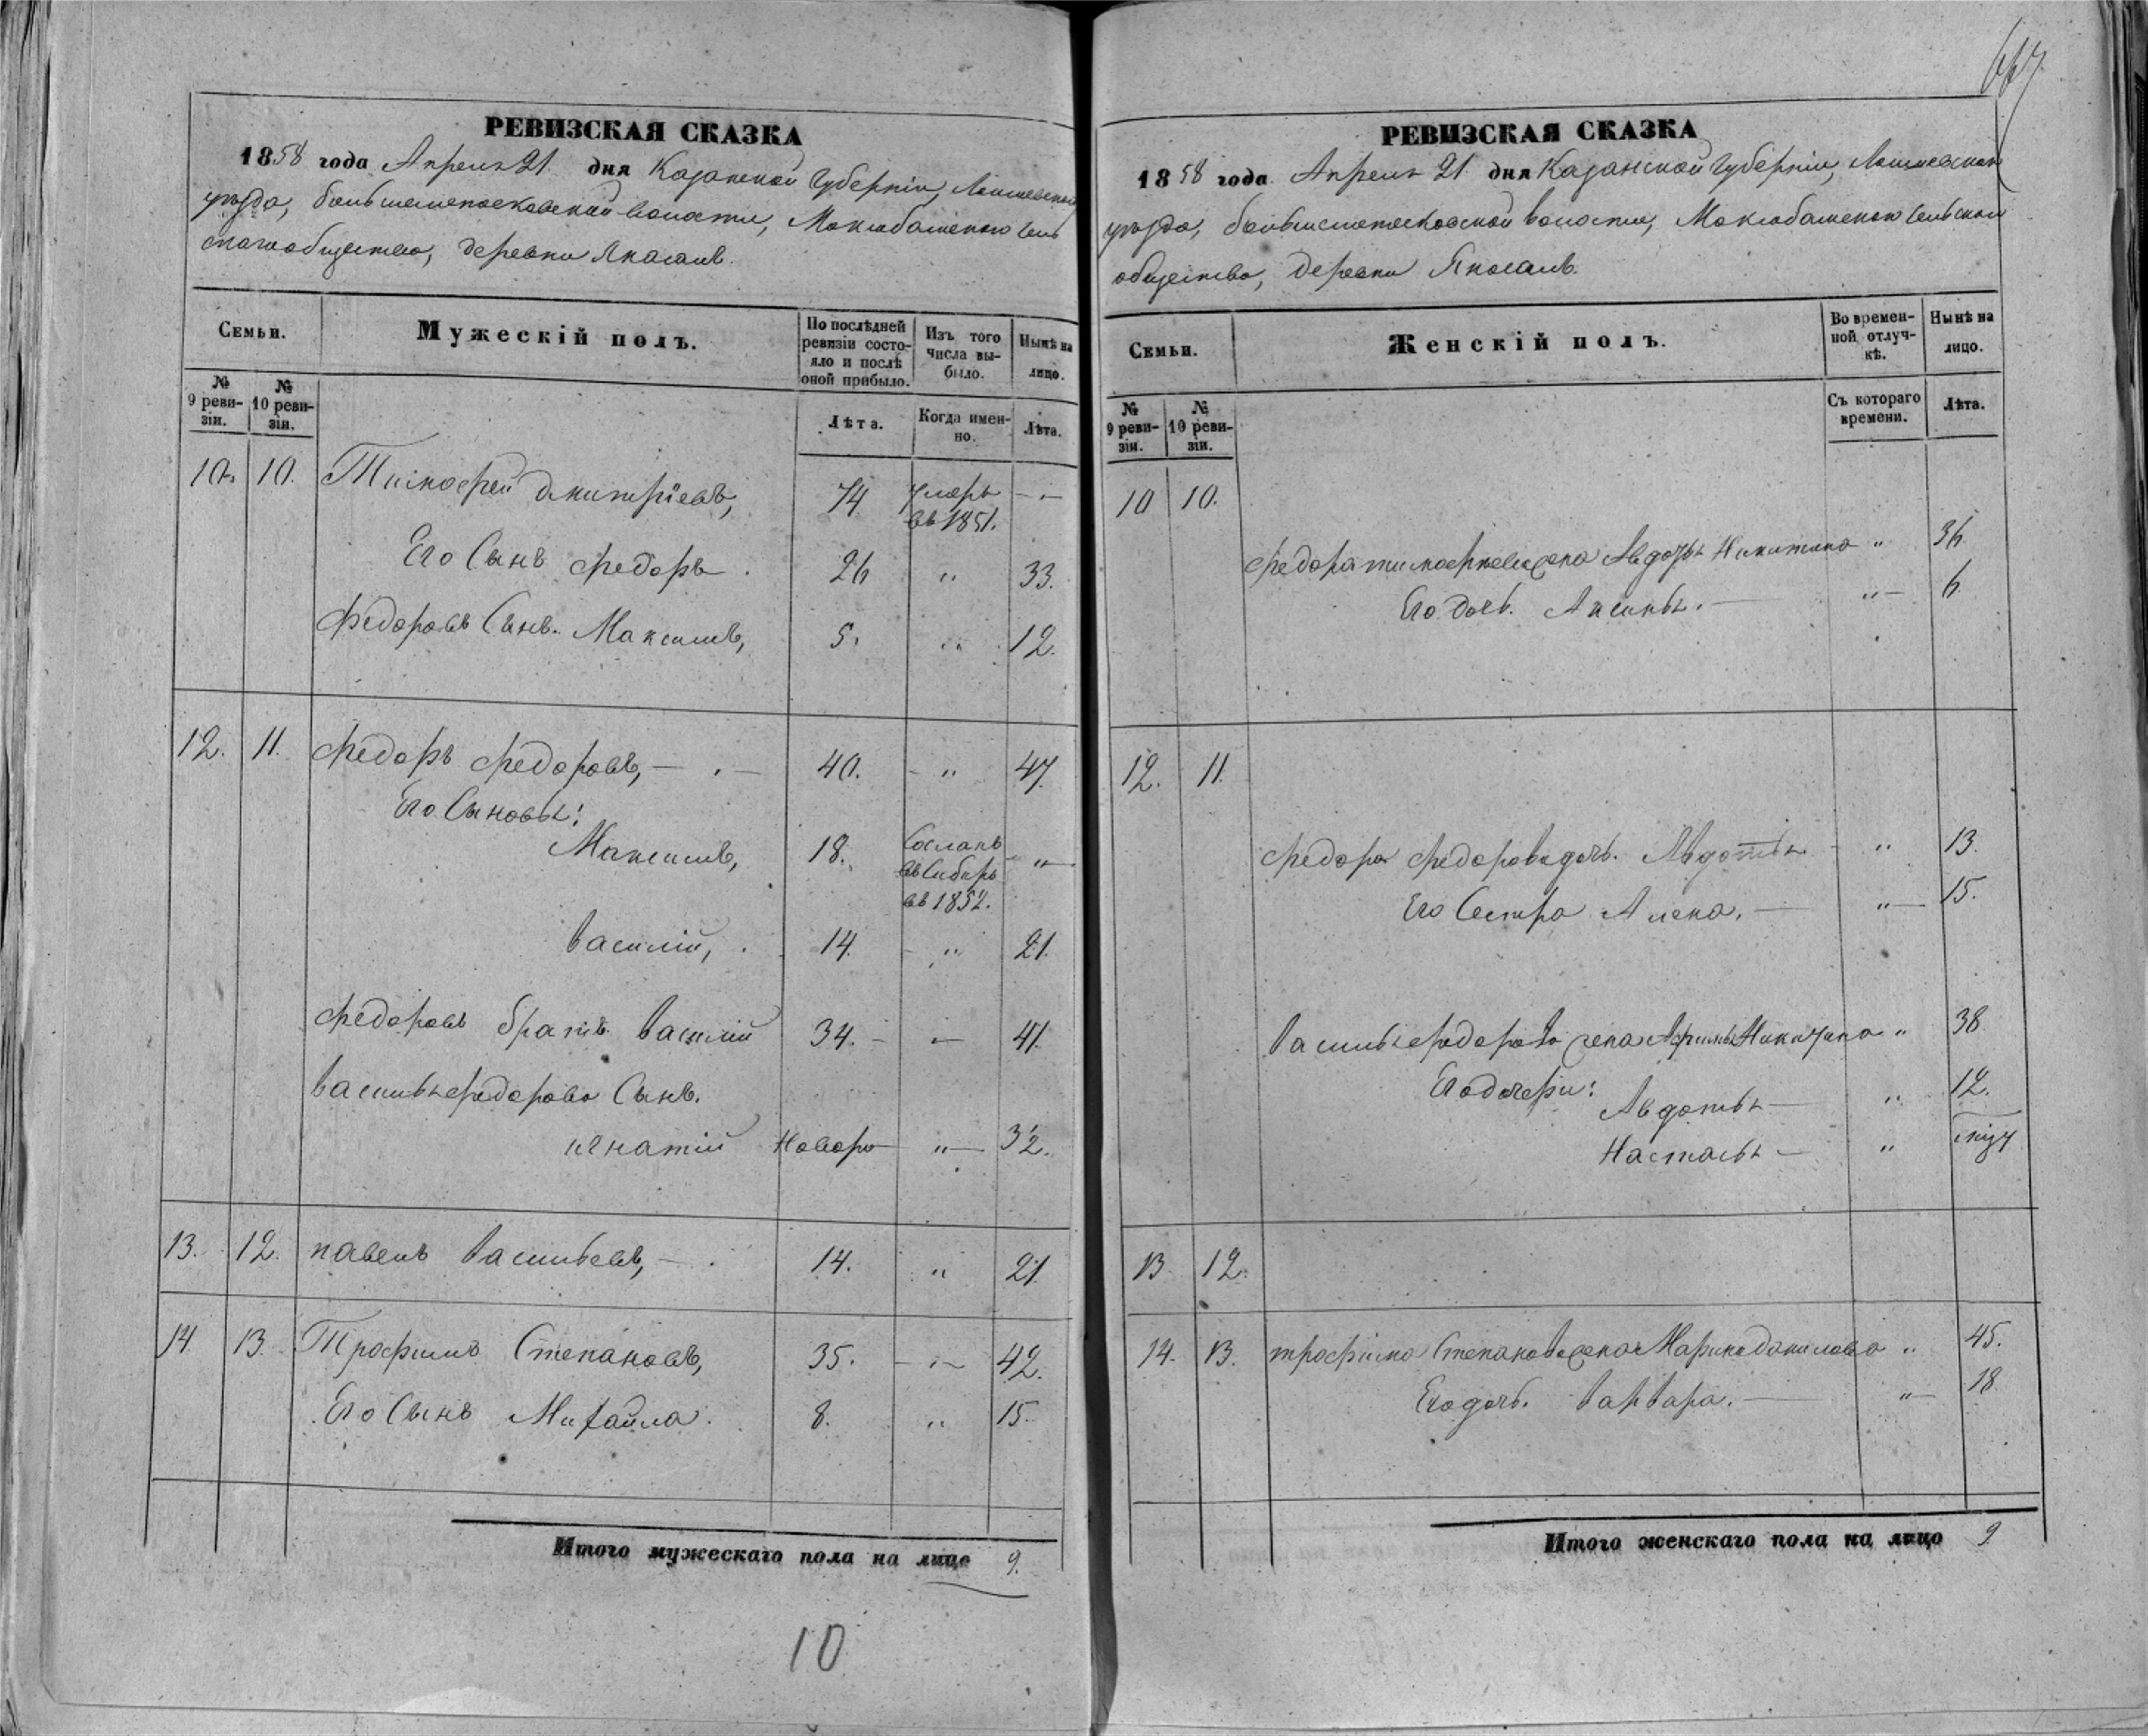 РЕВИЗСКАЯ СКАЗКА
1858 года Апреля 21 дня Казанской Губерніи, Лаишевскаго
уѣзда, волости,
общества, деревни
Семьи.
Мужескій полъ.
По послѣдней ревизіи состояло и послѣ оной прибыло.
Изъ того числа выбыло.
Нынѣ на лицо.
№ 9 ревизіи.
№ 10 ревизіи.
Лѣта.
Когда именно.
Лѣта.
10. 10. Тимофей Дмитріевъ, 74 умеръ въ 1851. — „ —
Его Сынъ Федоръ 26 „ 33.
Федоровъ Сынъ Максимъ, 5. „ 12.
12. 11. Федоръ Федоровъ, — 40. „ 47.
Его Сыновья:
Максимъ, 18. Сосланъ въ Сибирь въ 1852. „
Василій, 14. „ 21.
Федоровъ братъ Василій 34. „ 41.
Василья Федорова Сынъ.
игнатій новоро „ 3½.
13. 12. павелъ Васильевъ, — 14. „ 21.
14 13. Трофимъ Степановъ, 35. „ 42.
Его Сынъ Михайла. 8. „ 15.
Итого мужескаго пола на лицо 9.
10
РЕВИЗСКАЯ СКАЗКА
1858 года Апреля 21 дня Казанской Губерніи, Лаишевскаго
уѣзда, волости,
общества, деревни
Семьи.
Женскій полъ.
Во временной отлучкѣ.
Нынѣ на лицо.
№ 9 ревизіи.
№ 10 ревизіи.
Съ котораго времени.
Лѣта.
10 10.
Федора тимофеева жена Авдотья Никитина „ 36
Его дочь. Аксинья. — „ — 6
12. 11.
Федора Федорова дочь. Авдотья „ 13.
Его Сестра Алена. — „ — 15.
Василья федорова жена Никитина „ 38
Его дочери:
Авдотья — „ 12.
Настасья — „
13 12.
14. 13. трофима Степанова жена Марина данилова „ 45.
Его дочь. Варвара. — „ — 18
Итого женскаго пола на лицо 9